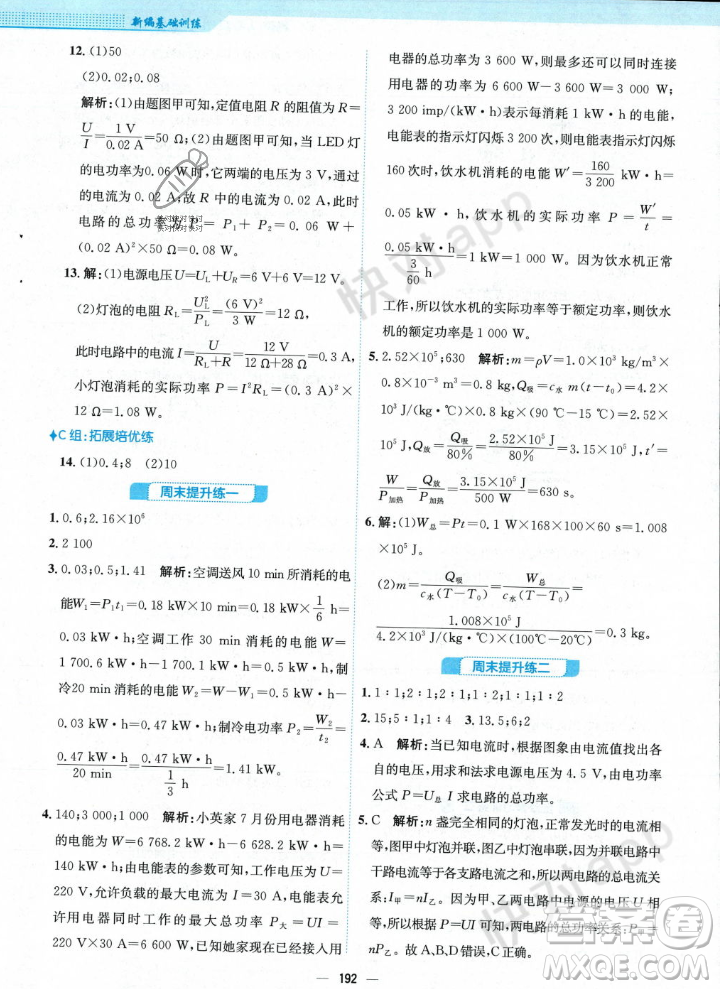 新编基础训练
12. (1)50
(2)0.02;0.08
解析:(1)由题图甲可知,定值电阻 R 的阻值为 R=
U/I=1 V/0.02 A=50 Ω;(2)由题图乙可知,当 LED 灯
的电功率为0.06 W时,它两端的电压为 3 V,通过
的电流为 0.02 A;故 R 中的电流为 0.02 A,此时
电路的总功率为 P=P1+P2=0.06 W+
(0.02 A)²×50 Ω=0.08 W。
13. 解:(1)电源电压U=UL+UR=6 V+6 V=12 V。
(2)灯泡的电阻 RL=UL²/PL=(6 V)²/3 W=12 Ω,
此时电路中的电流 I=U/(RL+R)=12 V/(12 Ω+28 Ω)=0.3 A,
小灯泡消耗的实际功率 P=I²RL=(0.3 A)²×
12 Ω=1.08 W。
C组:拓展培优练
14. (1)0.4;8 (2)10
周末提升练一
1. 0.6;2.16×10⁶
2. 2 100
3. 0.03;0.5;1.41 解析:空调送风 10 min所消耗的电
能W1=P1t1=0.18 kW×10 min=0.18 kW×1/6 h=
0.03 kW·h;空调工作 30 min 消耗的电能 W=
1 700.6 kW·h-1 700.1 kW·h=0.5 kW·h,制
冷20 min 消耗的电能 W2=W-W1=0.5 kW·h-
0.03 kW·h=0.47 kW·h;制冷电功率 P2=W2/t2=
0.47 kW·h/20 min=0.47 kW·h/(1/3 h)=1.41 kW。
4. 140;3 000;1 000 解析:小英家 7 月份用电器消耗
的电能为 W=6 768.2 kW·h-6 628.2 kW·h=
140 kW·h;由电能表的参数可知,工作电压为 U=
220 V,允许负载的最大电流为 I=30 A,电能表允
许用电器同时工作的最大总功率为 P大=UI=
220 V×30 A=6 600 W,已知她家现在已经接入用
电器的总功率为 3 600 W,此时还允许连接
使用电器的功率为 6 600 W-3 600 W=3 000 W;
3 200 imp/(kW·h)表示每消耗 1 kW·h 的电能,
电能表的指示灯闪烁 3 200 次,则电能表的指示灯闪烁
160 次时,饮水机消耗的电能为 W′=160/3 200 kW·h=
0.05 kW·h,饮水机的实际功率为 P=W′/t=
0.05 kW·h/(3/60 h)=1 kW=1 000 W。因为饮水机正常
工作,所以饮水机的实际功率等于额定功率,则饮水
机的额定功率为 1 000 W。
5. 2.52×10⁵;630 解析:m=ρV=1.0×10³ kg/m³×
0.8×10⁻³ m³=0.8 kg,Q吸=c水 m(t-t0)=4.2×
10³ J/(kg·℃)×0.8 kg×(90 ℃-15 ℃)=2.52×
10⁵ J,Q放=Q吸/80%=2.52×10⁵ J/80%=3.15×10⁵ J,t′=
W/P加热=Q放/P加热=3.15×10⁵ J/500 W=630 s。
6. 解:(1)W总=Pt=0.1 W×168×100×60 s=1.008
×10⁵ J;
(2)m=Q吸/(c水(T-T0))=W总/(c水(T-T0))=
1.008×10⁵ J/(4.2×10³ J/(kg·℃)×(100℃-20℃))=0.3 kg。
周末提升练二
1. 1∶1;2∶1;2∶1;2∶1;1∶1;1∶2
2. 15;5∶1;1∶4 3. 13.5;6;2
4. A 解析:当已知电流时,根据图象由电流值找出各
自的电压,用求和法求电源电压为 4.5 V,由电功率
公式 P=U总 I 求电路的总功率。
5. C 解析:n 盏完全相同的灯泡,正常发光时的电流相
等,图甲中灯泡并联,图乙中灯泡串联,并联电路中
干路电流等于各支路电流之和,则干路电流的关系
为 I甲=nI乙。由于甲、乙两电路中电源的电压 U 相
等,所以,由 P=UI 可知,两电路的总功率关系 P甲=
nP乙。故 A、B、D 错误,C 正确。
192
快对app
快对app
答案圈
MXQE.COM